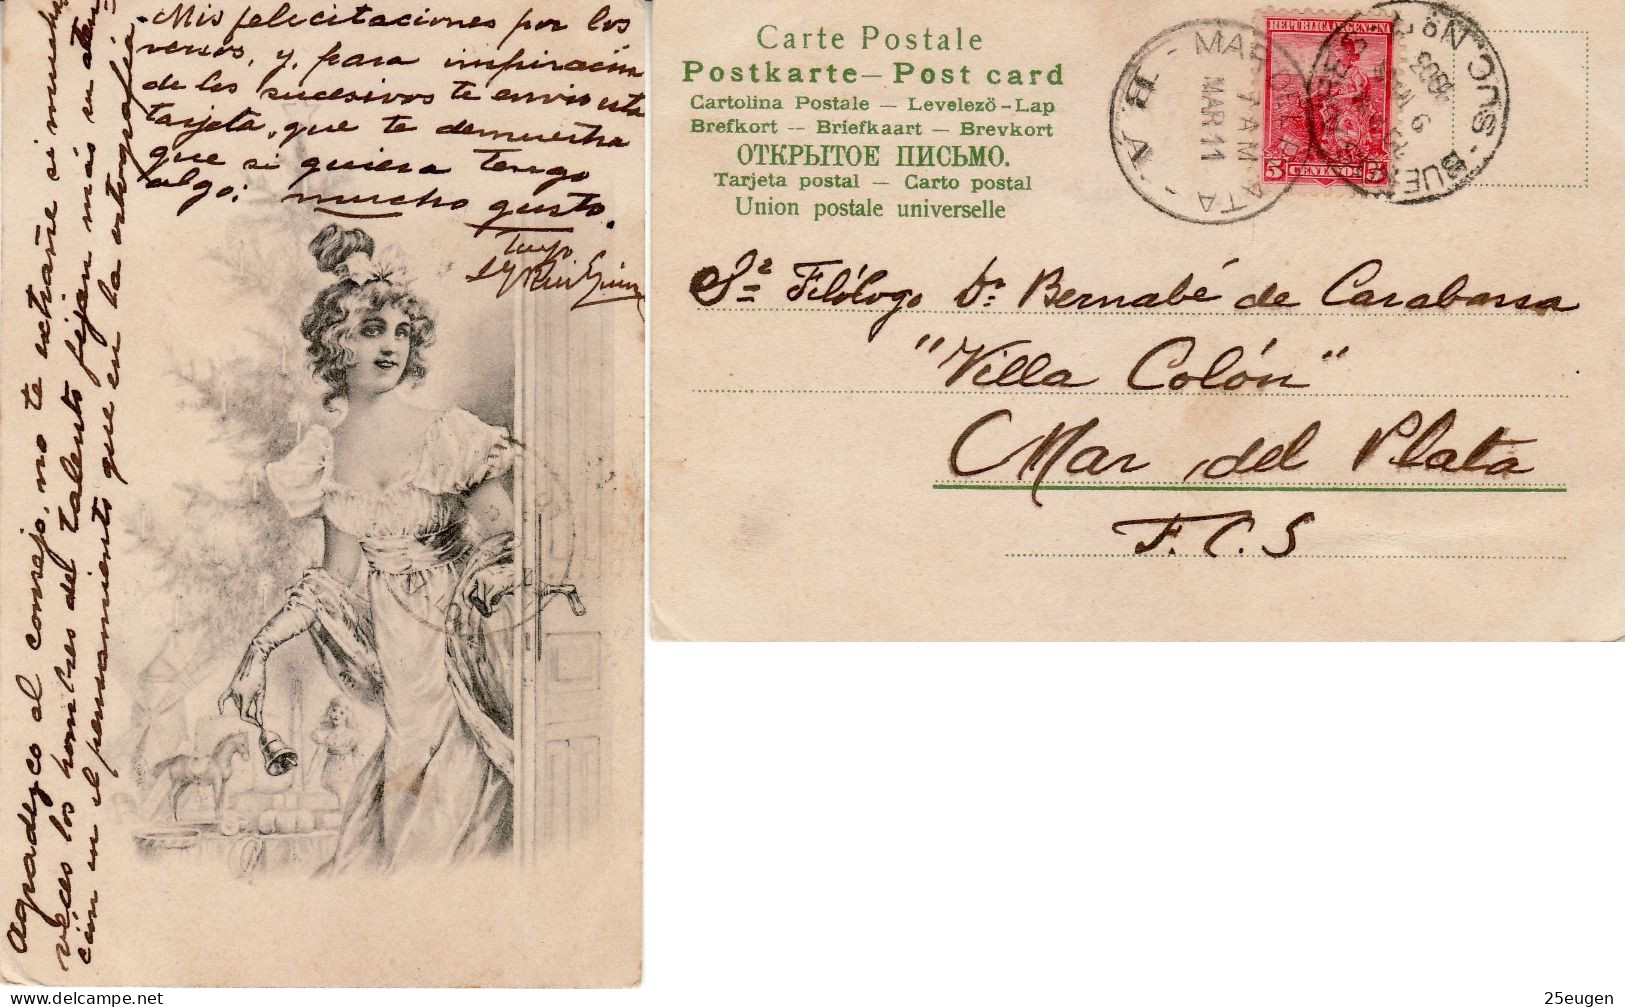 Mis felicitaciones por los
versos, y, para inspiración
de los sucesivos te envio esta
tarjeta, que te demuestra
que si quiera tengo
algo: mucho gusto.
Tuyo
Agradezco al consejo, no te extrañe si muchas
veces los hombres del talento fijan más en aten-
ción en el pensamiento que en la ortografía.
Carte Postale
Postkarte — Post card
Cartolina Postale — Levelező-Lap
Brefkort — Briefkaart — Brevkort
ОТКРЫТОЕ ПИСЬМО.
Tarjeta postal — Carto postal
Union postale universelle
MAR DEL PLATA
MAR 11
7 AM
B.A.
REPUBLICA ARGENTINA
5 CENTAVOS 5
SUC. Nº
BUEN
Sr. Filólogo Dr. Bernabé de Carabassa
"Villa Colón"
Mar del Plata
F.C.S
25eugen
delcampe.net